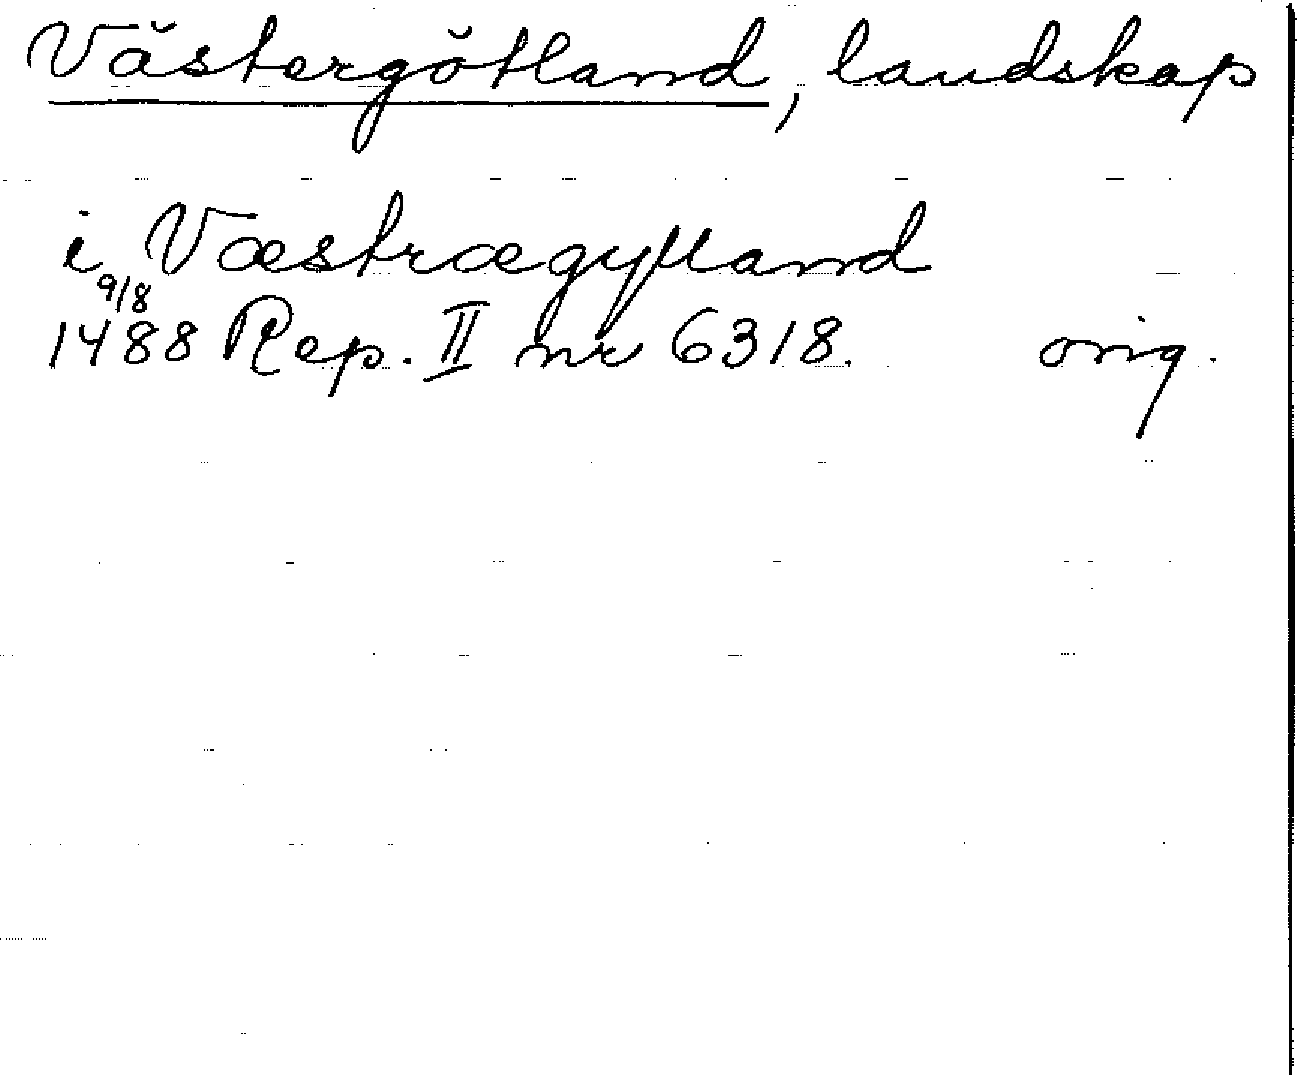 Västergötland, landskap
i Væstrægytland
9/8
1488 Rep. II nr 6318. orig.